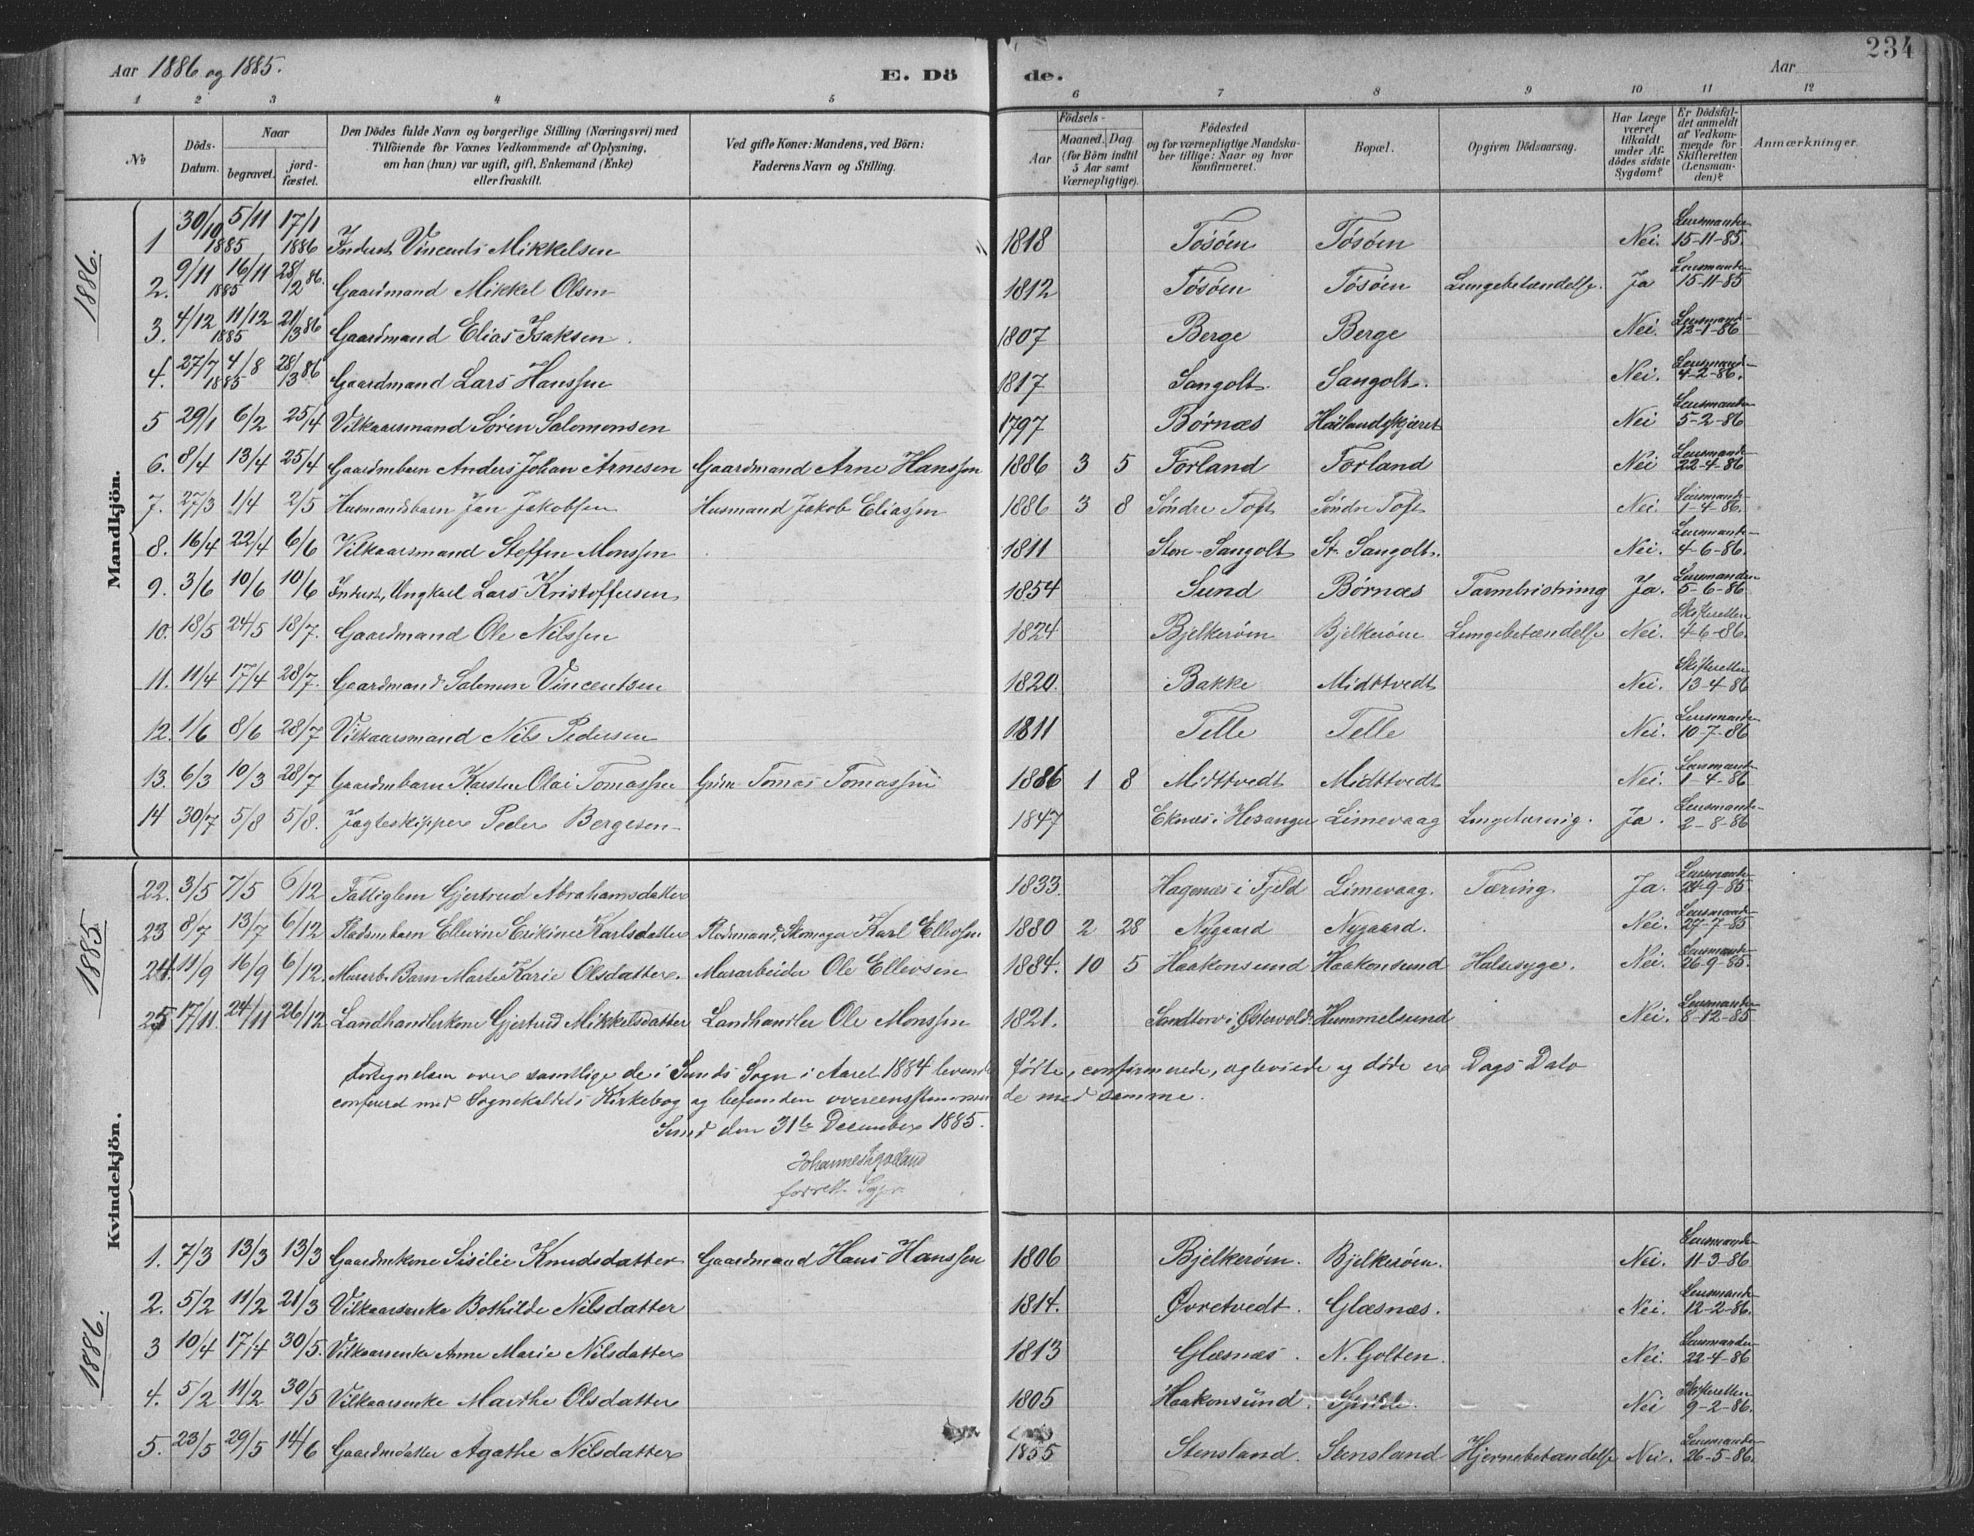 234
Aar 1886 og 1885. E. Dö de. Aar
1 2 3 4 5 6 7 8 9 10 11 12
No Döds-Datum. Naar begravet. jordfæstet. Den Dödes fulde Navn og borgerlige Stilling (Næringsvei) med Tilföiende for Voxnes Vedkommende af Oplysning, om han (hun) var ugift, gift, Enkemand (Enke) eller fraskilt. Ved gifte Koner: Mandens, ved Börn: Faderens Navn og Stilling. Födsels- Aar Maaned. Dag (for Börn indtil 5 Aar samt Værnepligtige). Födested og for værnepligtige Mandskaber tillige: Naar og hvor konfirmeret. Bopæl. Opgiven Dödsaarsag. Har Læge været tilkaldt under Afdödes sidste Sygdom? Er Dödsfaldet anmeldt af Vedkommende for Skifteretten (Lensmanden)? Anmærkninger.
1886.
Mandkjön.
1 30/10 1885 5/11 17/1 1886 Inderst Vincents Mikkelsen 1818 Tosöen Tosöen Nei. Lensmanden 15-11-85.
2. 9/11 1885 16/11 28/2 86. Gaardmand Mikkel Olsen 1812 Tosöen Tosöen Lungebetændelse. Ja Lensmanden 15-11-85
3. 4/12 1885 11/12 21/3 86 Gaardmand Elias Isaksen. 1807 Berge Berge Nei. Lensmand 12-1-86
4. 27/7 1885 4/8 28/3 86 Gaardmand Lars Hanssen 1817 Sangolt. Sangolt. Nei. Lensmand 4-2-86.
5 29/1 6/2 25/4 Vilkaarsmand Søren Salomonsen 1797 Børnæs Nei Lensmanden 5-2-86
6. 8/4 13/4 25/4 Gaardmbarn Anders Johan Arnesen Gaardmand Arne Hanssen 1886 3 5 Forland Forland Nei Lensmand 22-4-86
7. 27/3 1/4 2/5 Husmandsbarn Jan Jakobsen Husmand Jakob Eliassen 1886 3 8 Søndre Toft Søndre Toft Nei. Lensmand 1-4-86.
8. 16/4 22/4 6/6 Vilkaarsmand Steffen Monssen 1811 Store-Sangolt St. Sangolt. Nei. Lensmand 4-6-86
9. 3/6 10/6 10/6 Inderst, Ungkarl Lars Kristoffersen 1854 Sund Børnæs Ja. Lensmanden 5-6-86
10. 18/5 24/5 18/7. Gaardmand Ole Nilssen 1824 Bjelkerøm Bjelkerøm Lungebetændelse Nei. Skifteretten 4-6-86.
11. 11/4 17/4 28/7. Gaardmand Salomon Vincentsen 1820. Bakke Midttvedt Nei. Skifteretten 13-4-86
12. 1/6 8/6 28/7 Vilkaarsmand Nils Pedersen 1811 Telle Telle Nei. Lensmanden 10-7-86
13. 6/3 10/3 28/7 Gaardmbarn Karsten Olai Tomassen Tomas Tomassen 1886 1 8 Midttvedt Midttvedt Nei. Lensmand 1-4-86
14 30/7 5/8 5/8. Jagteskipper Peder Bergesen 1847 Eknæs i Hosanger Limevaag Ja. Lensmanden 2-8-86
1885.
Kvindekjön.
22. 3/5 7/5 6/12 Fattiglem Gjertrud Abrahamsdatter 1833. Hagenæs i Fjeld Limevaag. Tæring. Ja. Lensmand -9-85.
23 8/7 13/7 6/12 Pladsmbarn Ellevine Erikine Karlsdatter Pladsmand, Skomager Karl Ellevsen 1880 2 28 Nygaard Nygaard. Nei. Lensmand 27-7-85
24. 11/9 16/9 6/12. Murarb. Barn Marte Karie Olsdatter. Murarbeider Ole Ellevsen 1884. 10 5 Haakonsund Haakonsund Halssyge. Nei. Lensmand 26-9-85.
25 17/11. 24/11 26/12 Landhandlerkone Gjertrud Mikkelsdatter Landhandler Ole Monssen 1821. Sandtorv i Østervold Hummelsund Nei. Lensmanden 8-12-85
Fortegnelsen over samtlige de i Sunds Sogn i Aaret 1884 levende fødte, confirmerede, egteviede og døde er Dags Dato
confererd med Sognekaldets Kirkebog og befunden overeensstemmende med samme.
Sund den 31te December 1885.
1886.
1. 7/3 13/3 13/3 Gaardmkone Sisilie Knudsdatter Gaardmand Hans Hanssen 1806 Bjelkerøm. Bjelkerøm. Nei. Lensmanden 11-3-86
2. 5/2 11/2 21/3 Vilkaarsenke Bothilde Nilsdatter 1814. Øvretvedt. Glæsnæs. Nei. Lensmand 12-2-86.
3 10/4 17/4 30/5. Vilkaarsenke Anne Marie Nilsdatter 1813 Glæsnæs. N. Golten. Nei. Lensmanden 22-4-86
4. 5/2 11/2 30/5 Vilkaarsenke Marthe Olsdatter 1805 Haakonsund. Spilde. Nei Skifteretten 9-2-86.
5. 23/5 29/5 14/6 Gaardmdatter Agathe Nilsdatter 1855 Stensland. Stensland Hjernebetændelse Nei. Lensmanden 26-5-86.